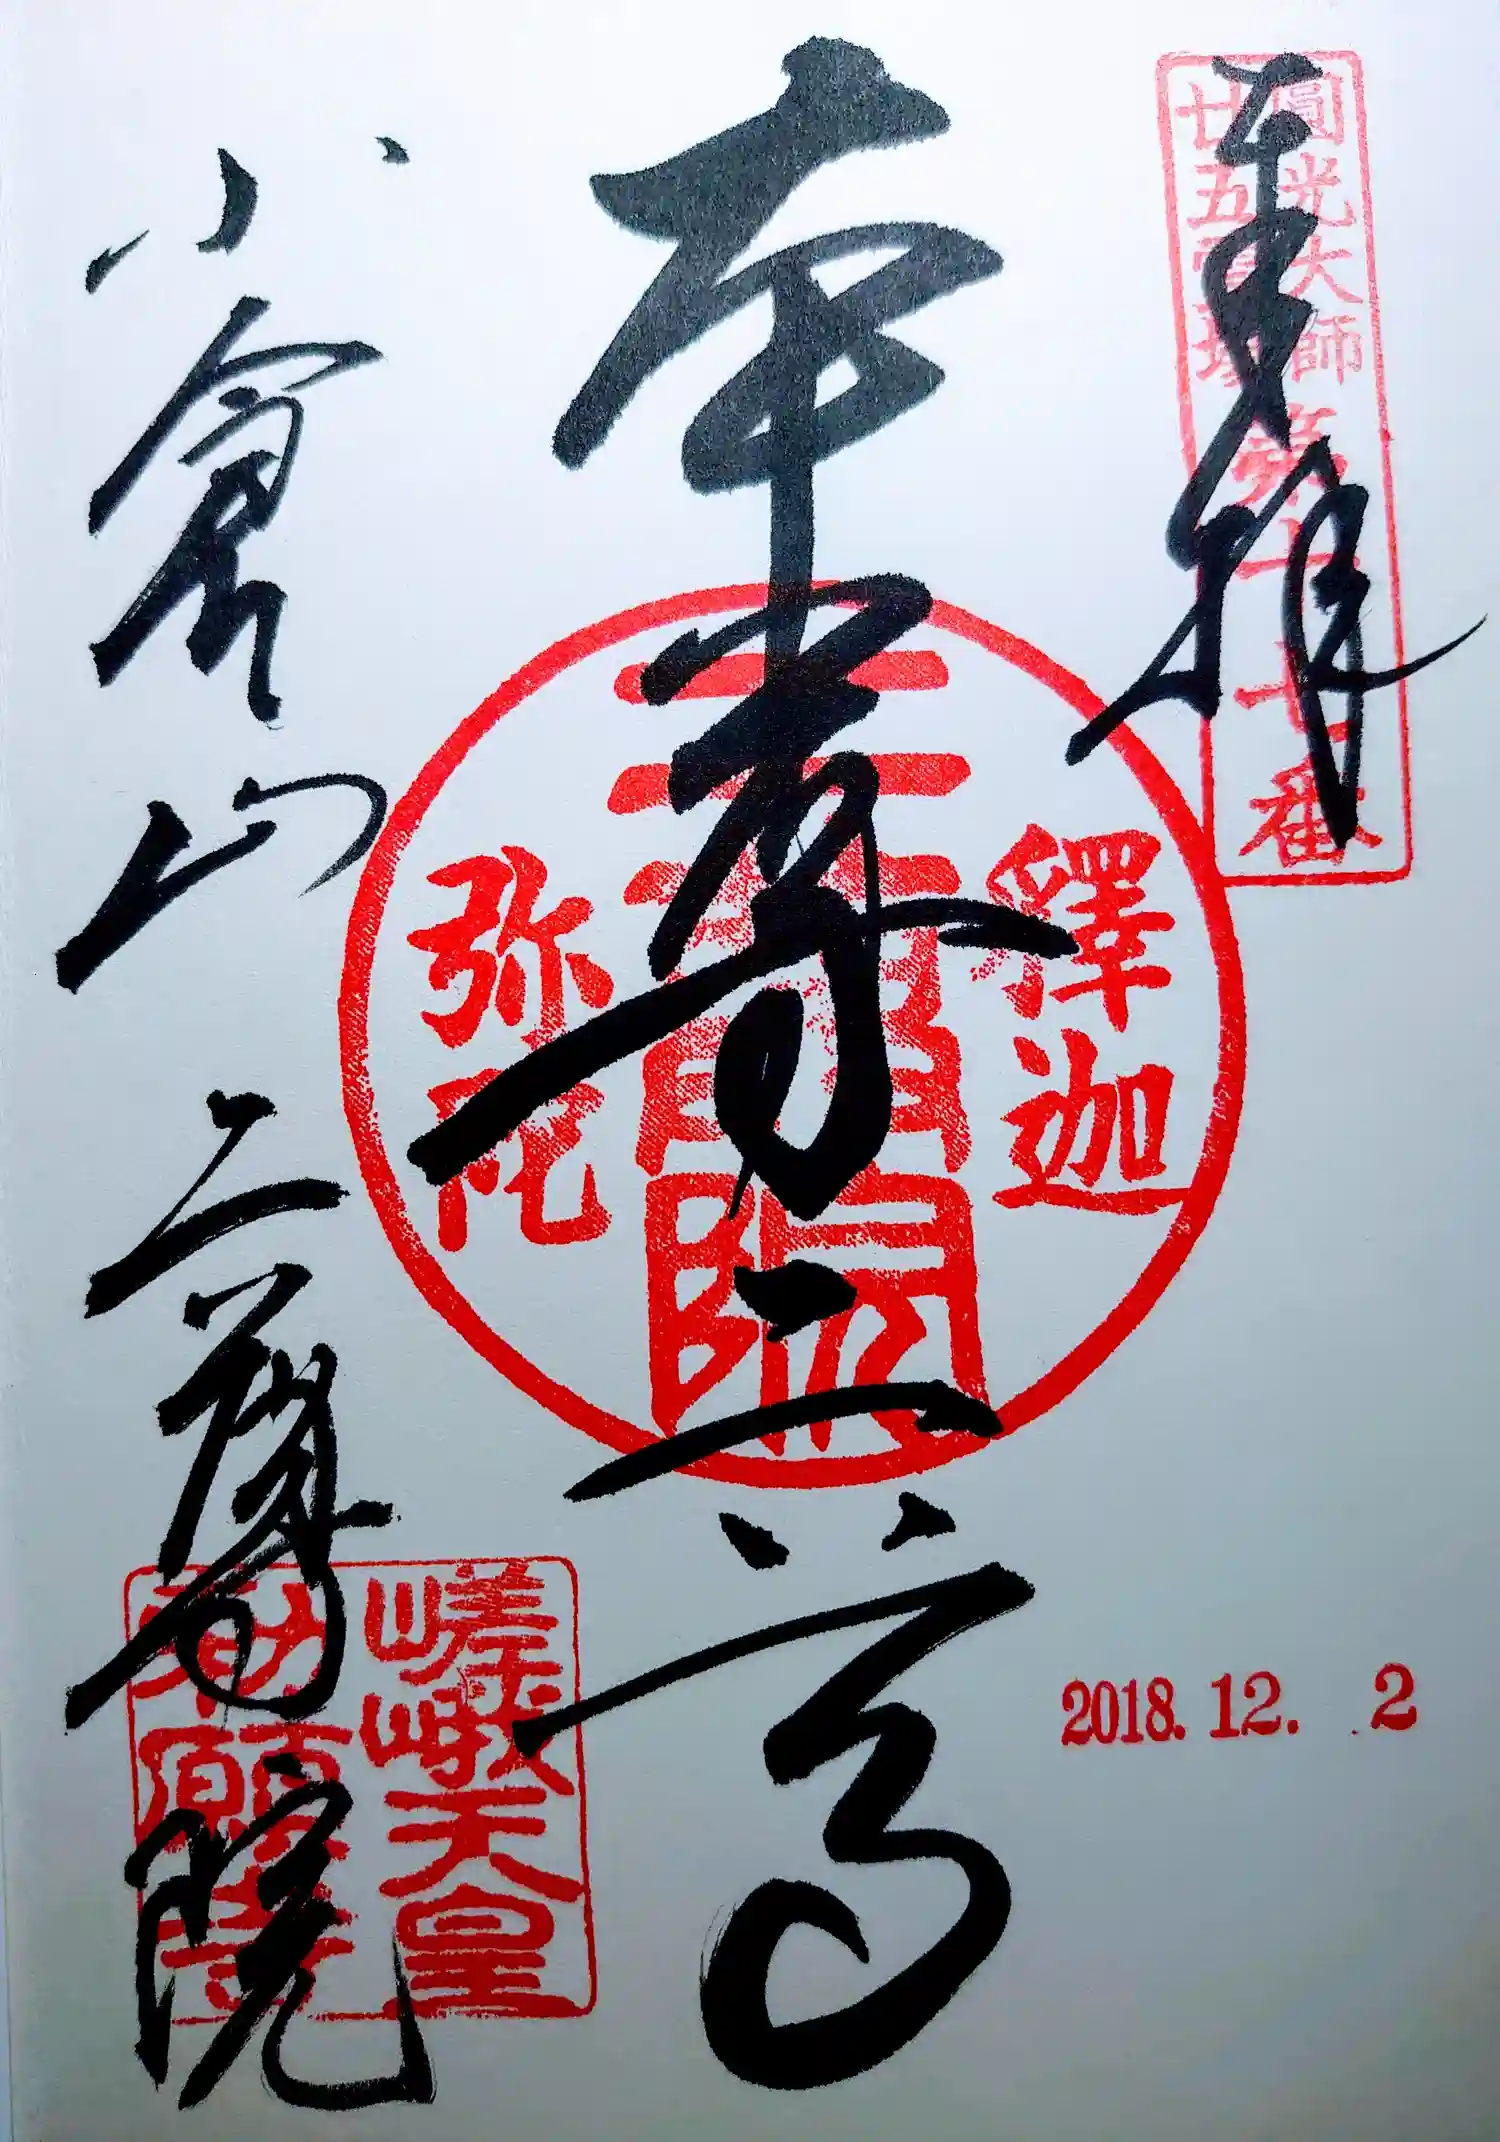 奉拝
圓光大師
廿五霊場
第十七番
本尊二尊
釋迦
二尊院
弥陀
小倉山
二尊院
嵯峨天皇
勅願
2018.12. 2